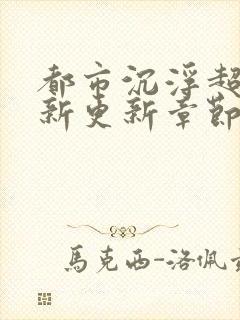 都市沉浮超
新更新章節
馬克西-洛佩茲